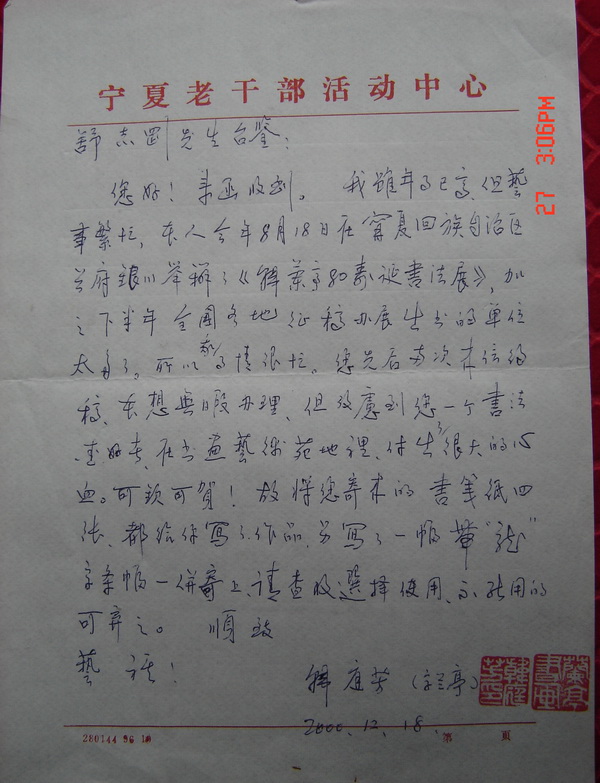 宁夏老干部活动中心
舒志刚先生台鉴：
您好！来函收到。我虽年事已高，但藝
事繁忙，本人今年8月18日在寧夏回族自治区
首府銀川举辦了《韓蘭亭80寿誕書法展》，加
之下半年全国各地征稿办展出书的单位
太多了。所以事情很忙。您先后两次来信约
稿，本想無暇办理，但攷慮到您一个書法
爱好者，在书画藝術苑地裡，付出了很大的心
血。可欽可賀！故将您寄来的書笺纸四
张，都给你写了作品，另写了一幅带“龍”
字条幅一併寄上，请查收選择使用，不能用的
可弃之。 順致
藝祺！
韓（字兰亭）
2000.12.18.
280144 96 1
第 页
27 3:06PM